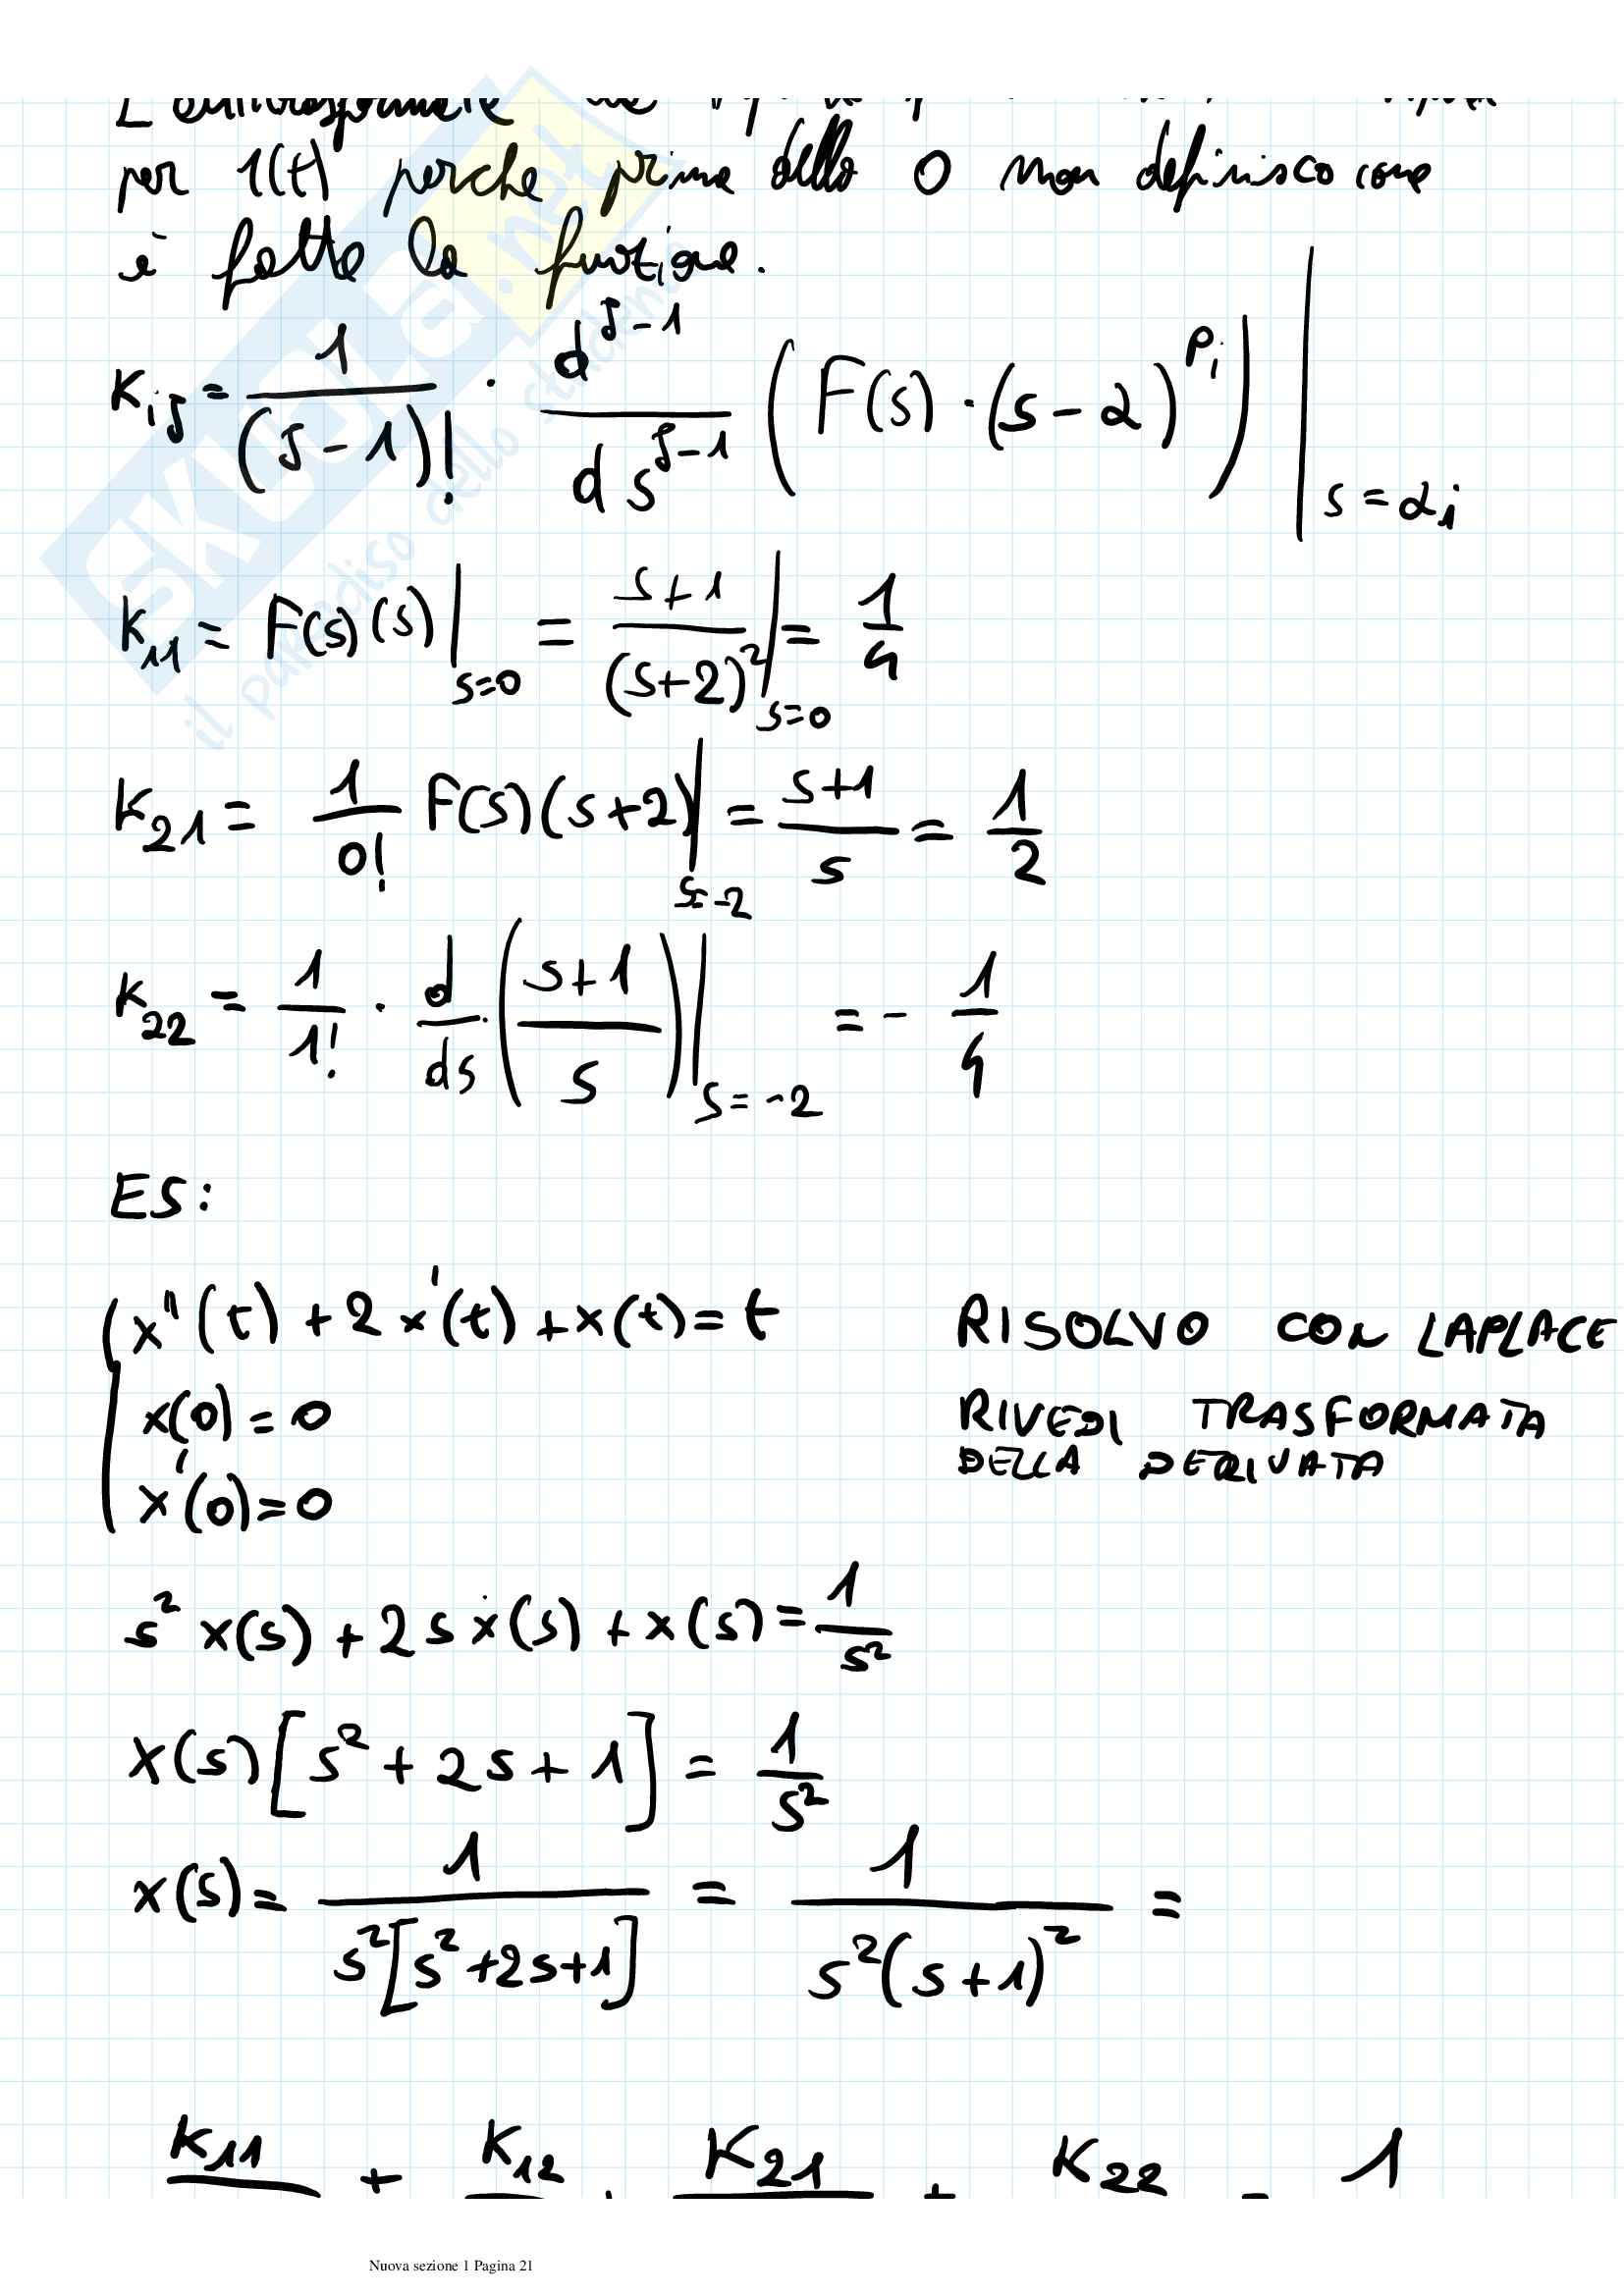 per 1(t) perche prima dello 0 non definisco come
è fatta la funzione.
K_{ij} = \frac{1}{(j-1)!} \cdot \frac{d^{j-1}}{ds^{j-1}} ( F(s) \cdot (s-α)^{p_i} ) |_{s=α_i}
K_{11} = F(s)(s) |_{s=0} = \frac{s+1}{(s+2)^2} |_{s=0} = \frac{1}{4}
K_{21} = \frac{1}{0!} F(s)(s+2) |_{s=-2} = \frac{s+1}{s} = \frac{1}{2}
K_{22} = \frac{1}{1!} \cdot \frac{d}{ds} \cdot ( \frac{s+1}{s} ) |_{s=-2} = - \frac{1}{4}
ES:
x''(t) + 2x'(t) + x(t) = t RISOLVO CON LAPLACE
x(0) = 0 RIVEDI TRASFORMATA
DELLA DERIVATA
x'(0) = 0
s^2 x(s) + 2s x(s) + x(s) = \frac{1}{s^2}
X(s) [s^2 + 2s + 1] = \frac{1}{s^2}
x(s) = \frac{1}{s^2[s^2+2s+1]} = \frac{1}{s^2(s+1)^2} =
K_{11} + K_{12} + K_{21} + K_{22} = 1
Nuova sezione 1 Pagina 21
SKUOLA.net
il paradiso dello studente